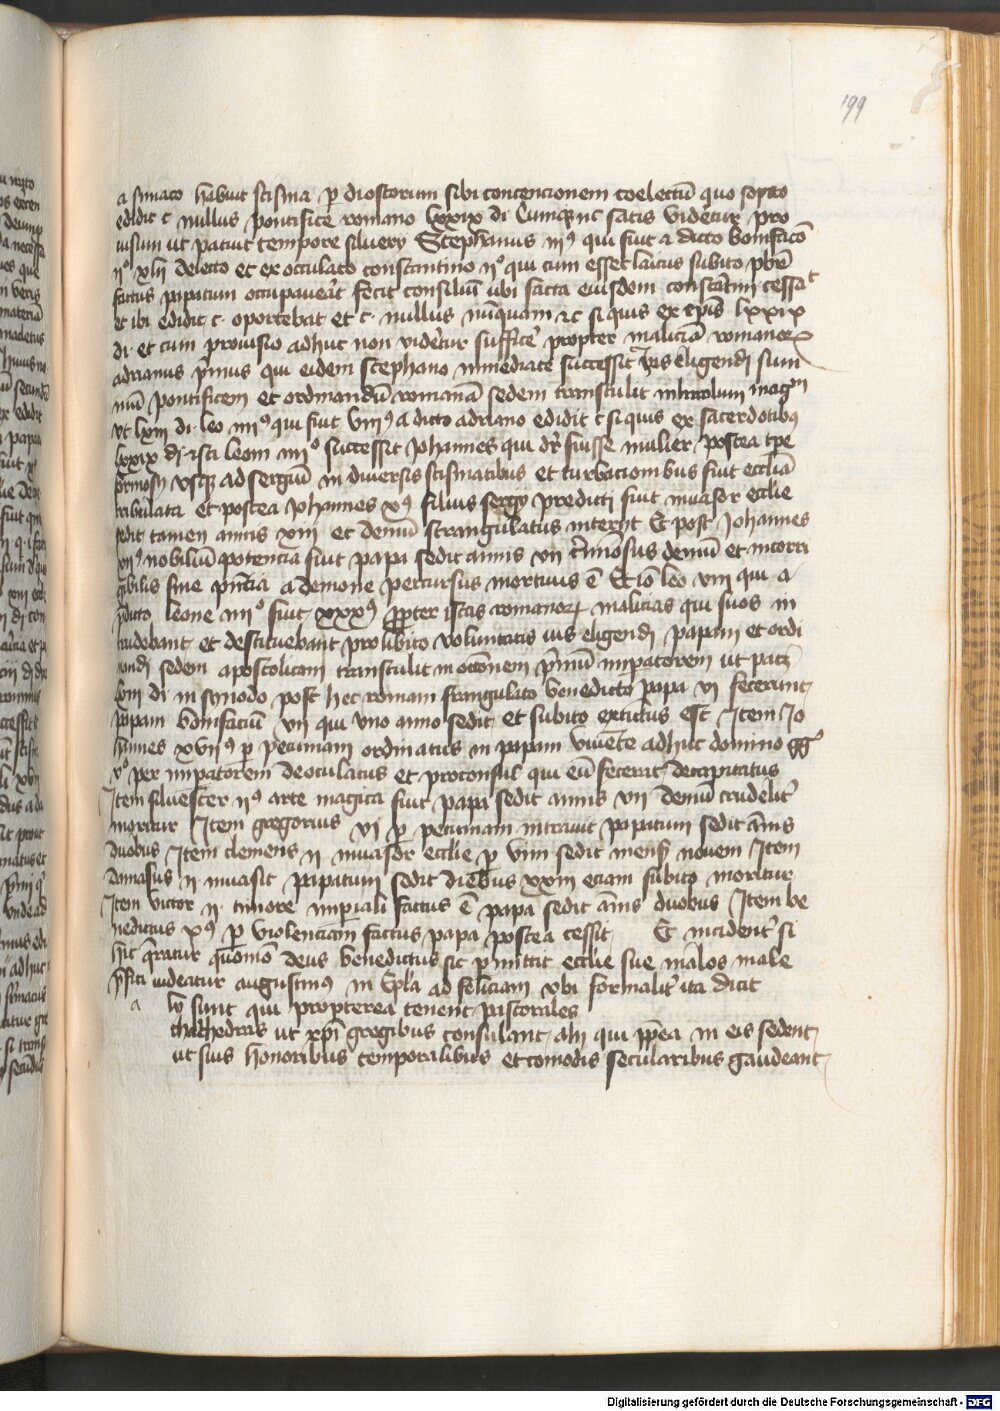 199
a simaco habuit scisma p diostorum sibi contencionem coelectū quo sopito
edidit c nullus pontifice romano lxxix di Cumq; nc satis videtur pro
uisum ut patuit tempore silvery Stephanus iijꝰ qui fuit a dicto bonifacō
ijº xlij delecto et ex occulato constantino ijº qui cum esset laicus subito pbr̄
factus papatum occupaver̄t fecit consiliū ubi facta eiusdem constātini cessat
et ibi edidit c. oportebat et c. nullus nūquam et c si quis ex ep̄is lxxix
di. et cum provisio adhuc non vidētur sufficē propter maliciā romanorꝝ
adrianus p̄mus qui eidem stephano immediate successit ius eligendi sum
mū pontificem et ordinandū romanā sedem transtulit in karolum magnū
ut lxiii di. leo iiijꝰ qui fuit viiijꝰ a dicto adriano edidit c si quis ex sacerdotibꝰ
lxxix di. isti leoni iiijº successit Johannes qui dr̄ fuisse mulier postea tpe
formosi usq; ad sergiū in diversis scismatibus et turbacionibus fuit ecclīa
tribulata et postea Johannes xꝰ filius sergij predicti fuit invasor ecclīe
sedit tamen annis xiij et demū strangulatus interijt Et post Johannes
xijꝰ nobiliū potencia fuit papa sedit annis vij c̄minosus demū et incorri
gibilis sine pn̄tia a demone percussus mortuus ē Et iō leo viij qui a
p̄dicto leone iiijº fuit xxxꝰ propter istas romanorꝝ malicias qui suos in
trudebant et destituebant pro libito voluntatis ius eligendi papam et ordi
nandi sedem apostolicam transtulit in ottonem p̄mū imp̄atorem ut patꝫ
lxiij di in synodo post hec romani strangulato benedicto papa vi fecerunt
papam bonifaciū vij qui uno anno sedit et subito extictus est Item Jo
hannes xvijꝰ p pecuniam ordinatus in papam vivente adhuc domino gg̅
vº per imp̄atorem deoculatus et proconsul qui eū fecerat decapitatus
Item silvester ijꝰ arte magica fuit papa sedit annis vij demū crudelit̄
moritur Item gregorius vi p pecuniam intravit papatum sedit ānis
duobus Item clemens ij invasor ecclīe p vim sedit mensꝫ novem Item
damasus ij invasit papatum sedit diebus xxiij eciam subito moritur
Item victor ij timore imp̄iali factus ē papa sedit ānis duobus Item be
nedictus xꝰ p violenciam factus papa postea cessit Et incident̄ si
hic q̄ratur quōmō deus benedictus sic p̄mittit ecclīe sue mālos male
p̄fici videatur augustinus in ep̄la ad feliciam ubi formalit̄ ita dicit
a lij sunt qui propterea tenent pastorales
cathedras ut xp̄i gregibus consulant alij qui pp̄ea in eis sedent
ut suis honoribus temporalibus et comodis secularibus gaudeant
Digitalisierung gefördert durch die Deutsche Forschungsgemeinschaft - DFG